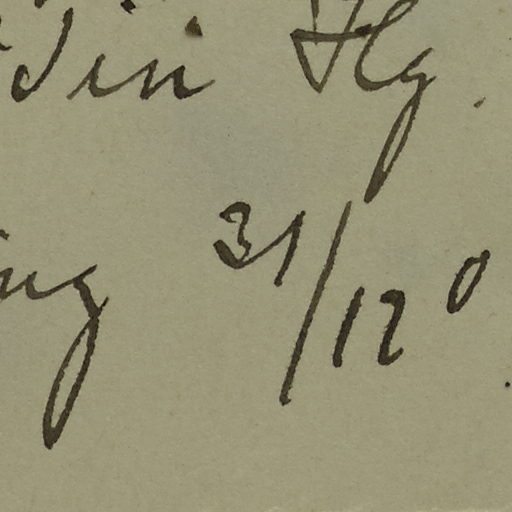 din Hg.
ng 31/12 0